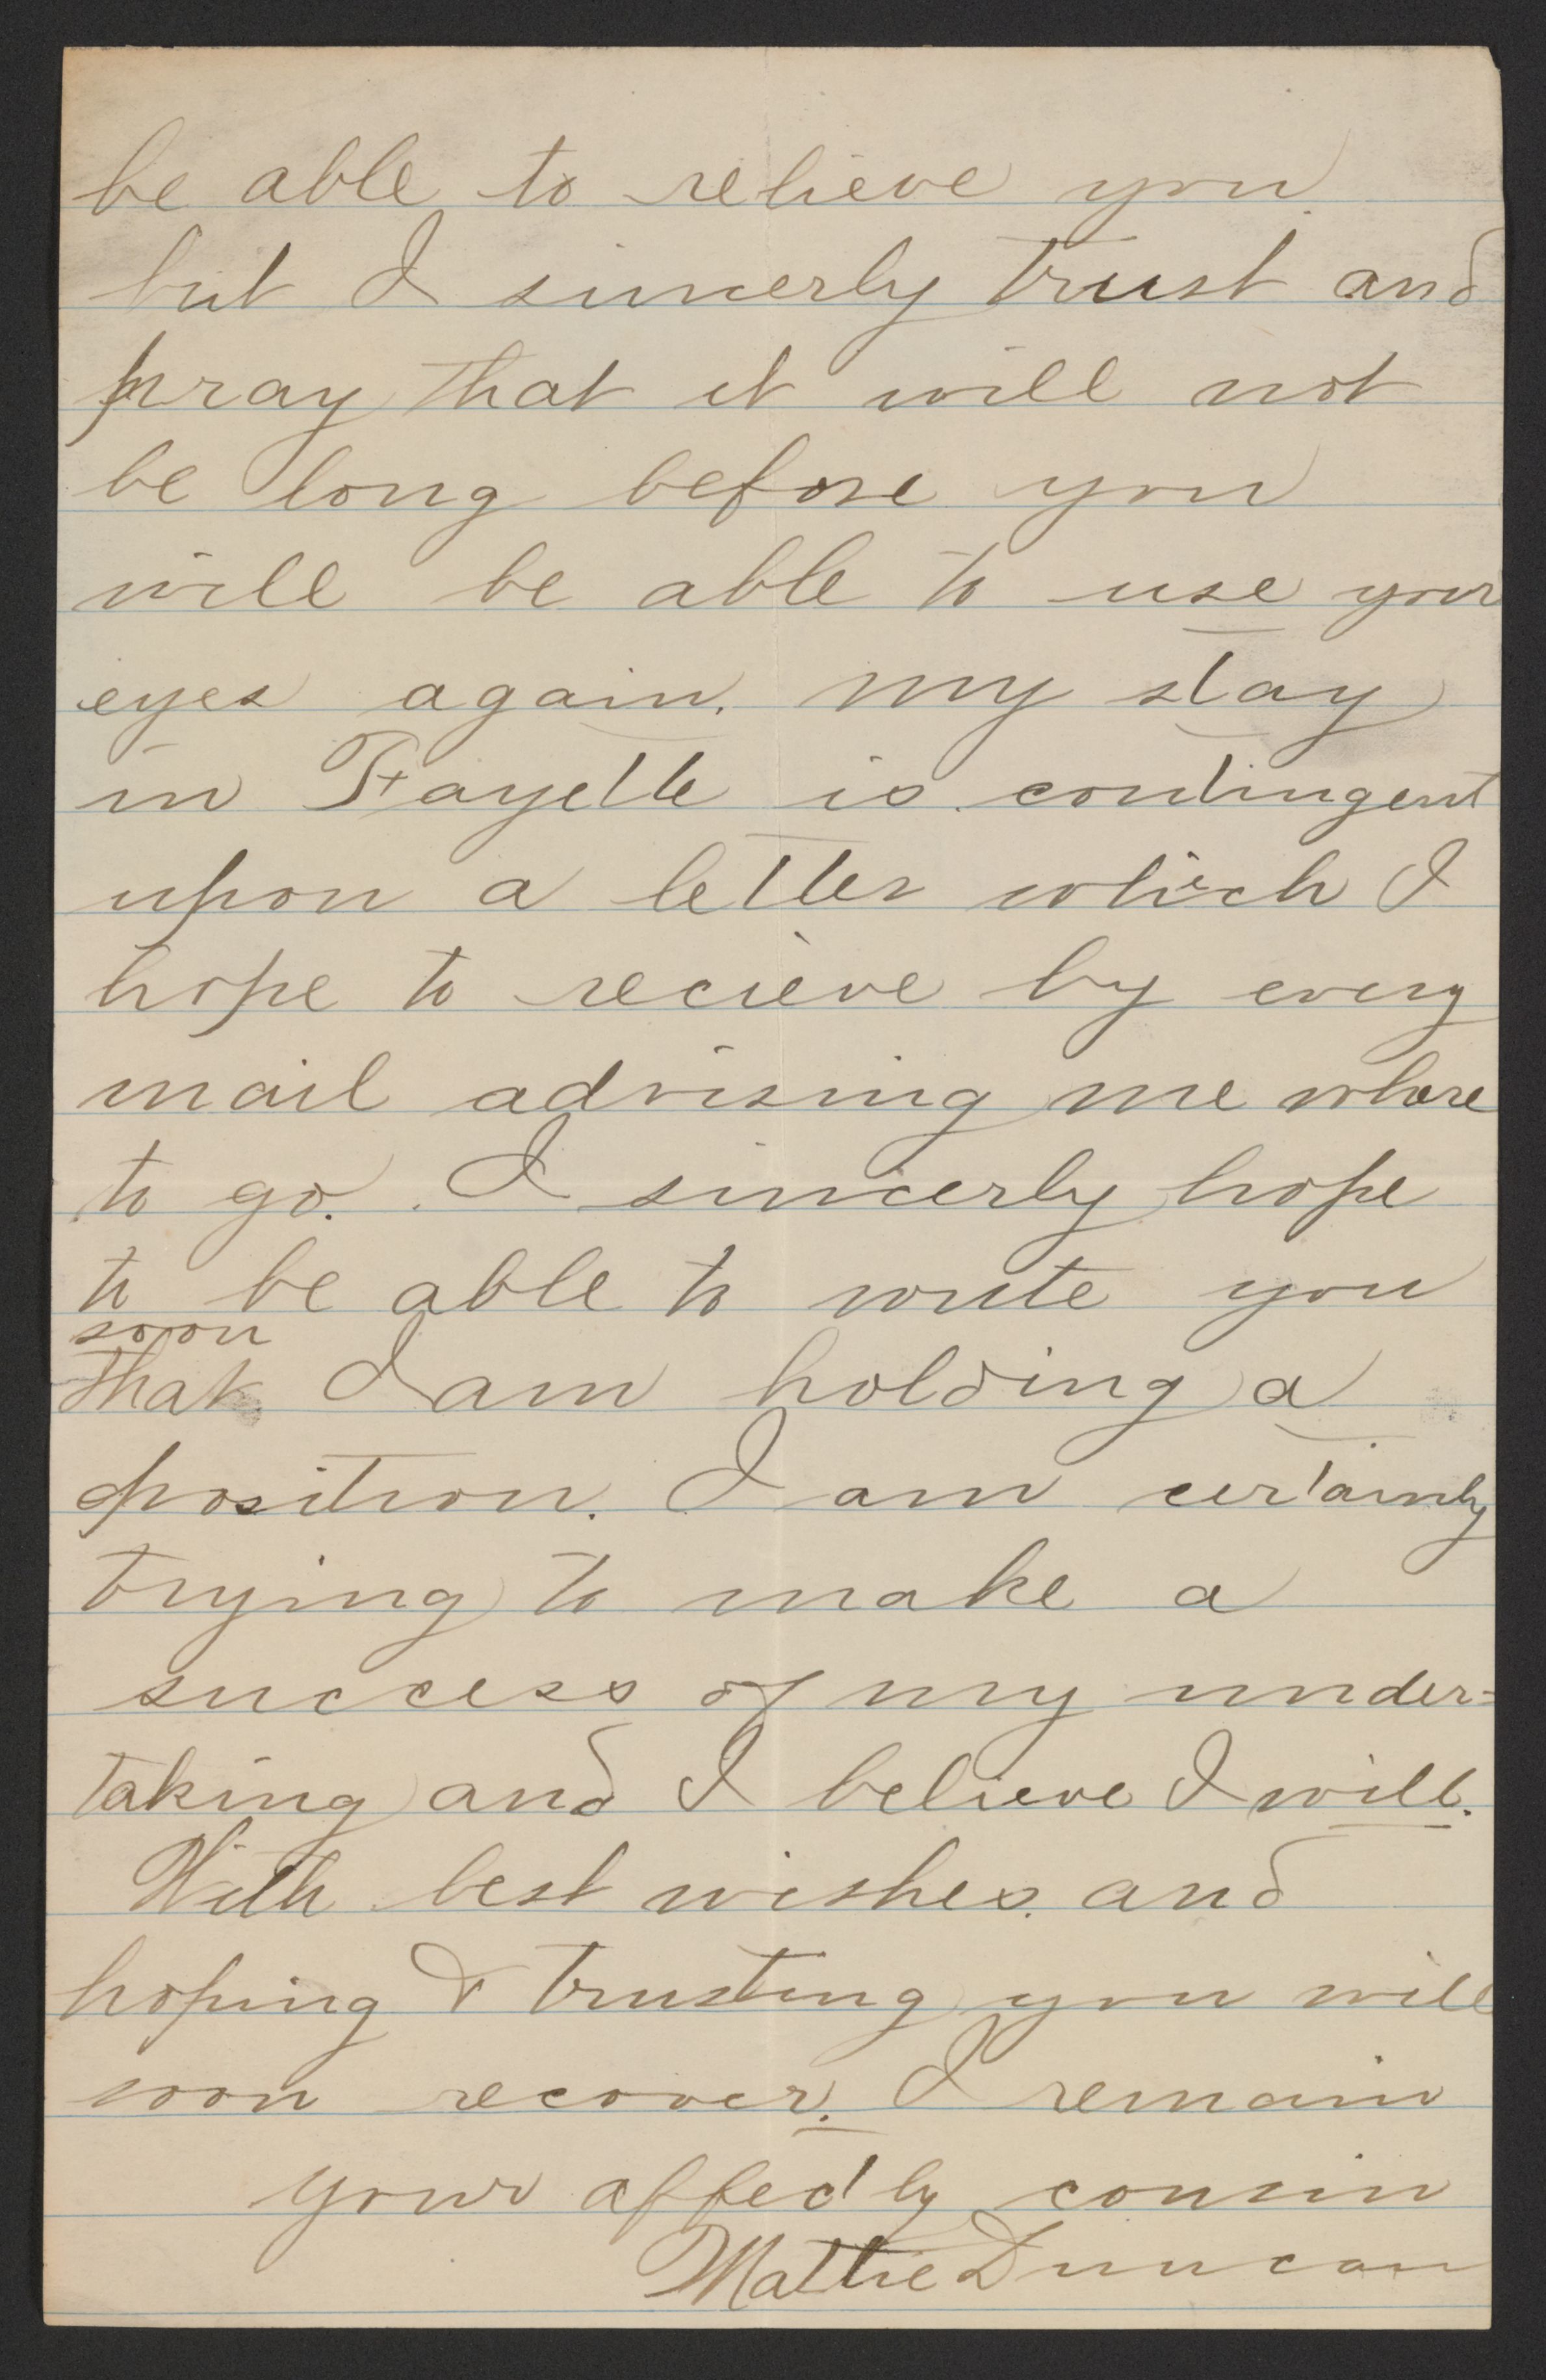 be able to relieve you
but I sincerly trust and
pray that it will not
be long before you
will be able to use your
eyes again. my stay
in Fayette is contingent
upon a letter which I
hope to recieve by every
mail advising me where
to go. I sincerly hope
to be able to write you
soon
that I am holding a
position. I am certainly
trying to make a
success of my under=
taking and I believe I will.
With best wishes and
hoping & trusting you will
soon recover. I remain
your affectly cousin
Mattie Duncan